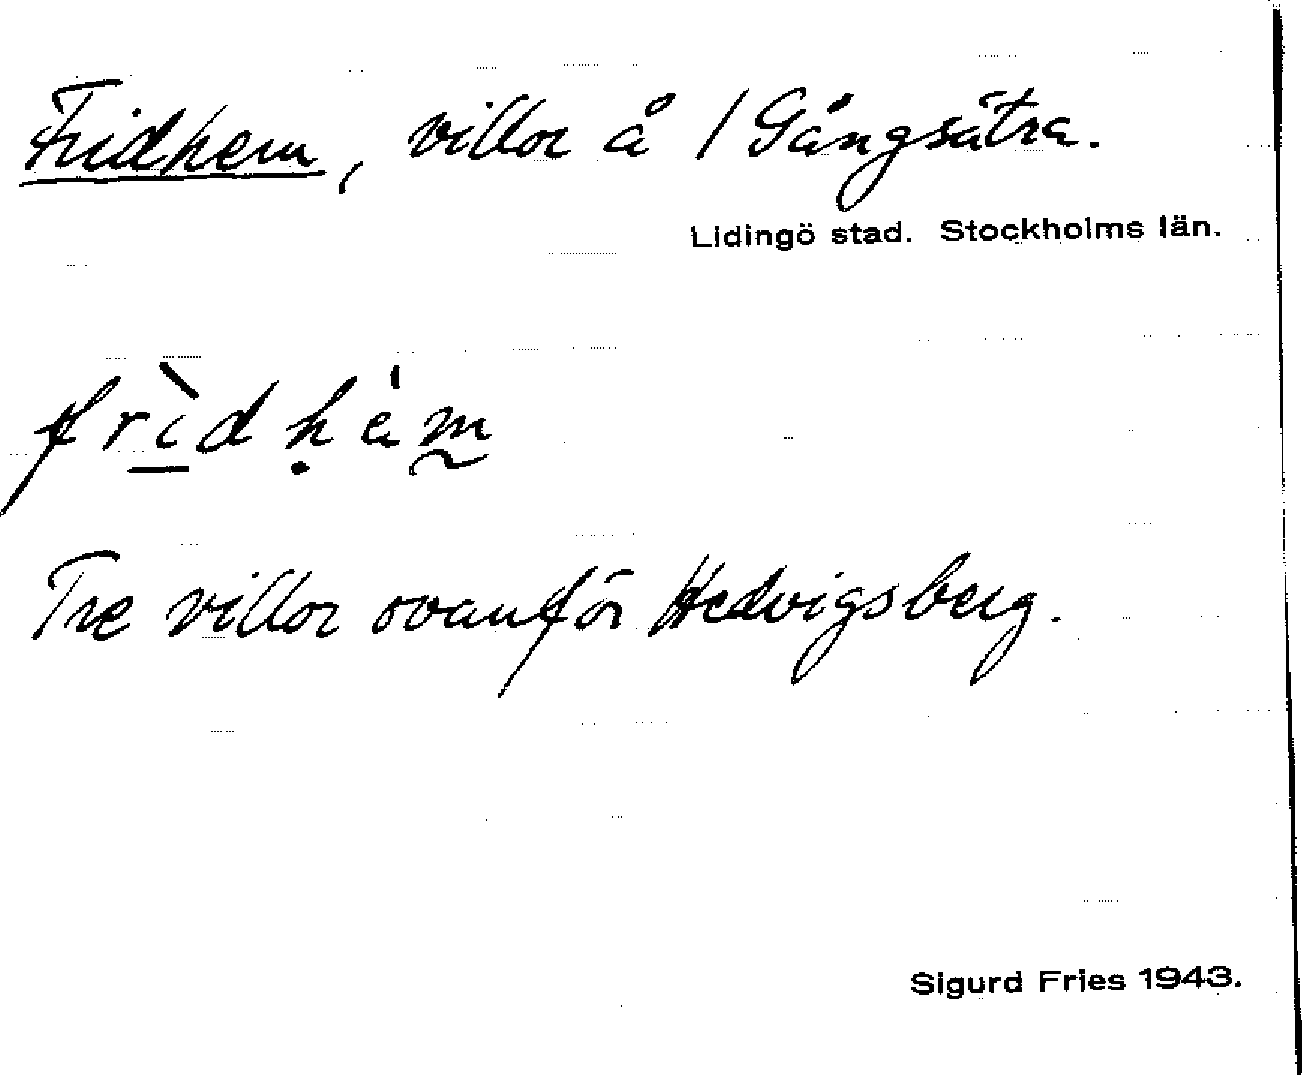 Fridhem, villor å / Gångsätra.
Lidingö stad. Stockholms län.
frìdhèm
Tre villor ovanför Hedvigsberg.
Sigurd Fries 1943.